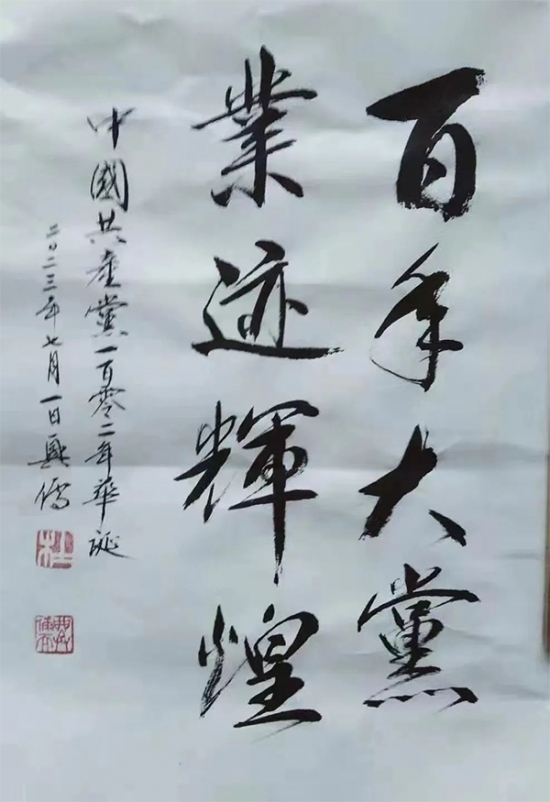 百年大黨
業迹輝煌
中國共產黨一百零二年華诞
二〇二三年七月一日興儒